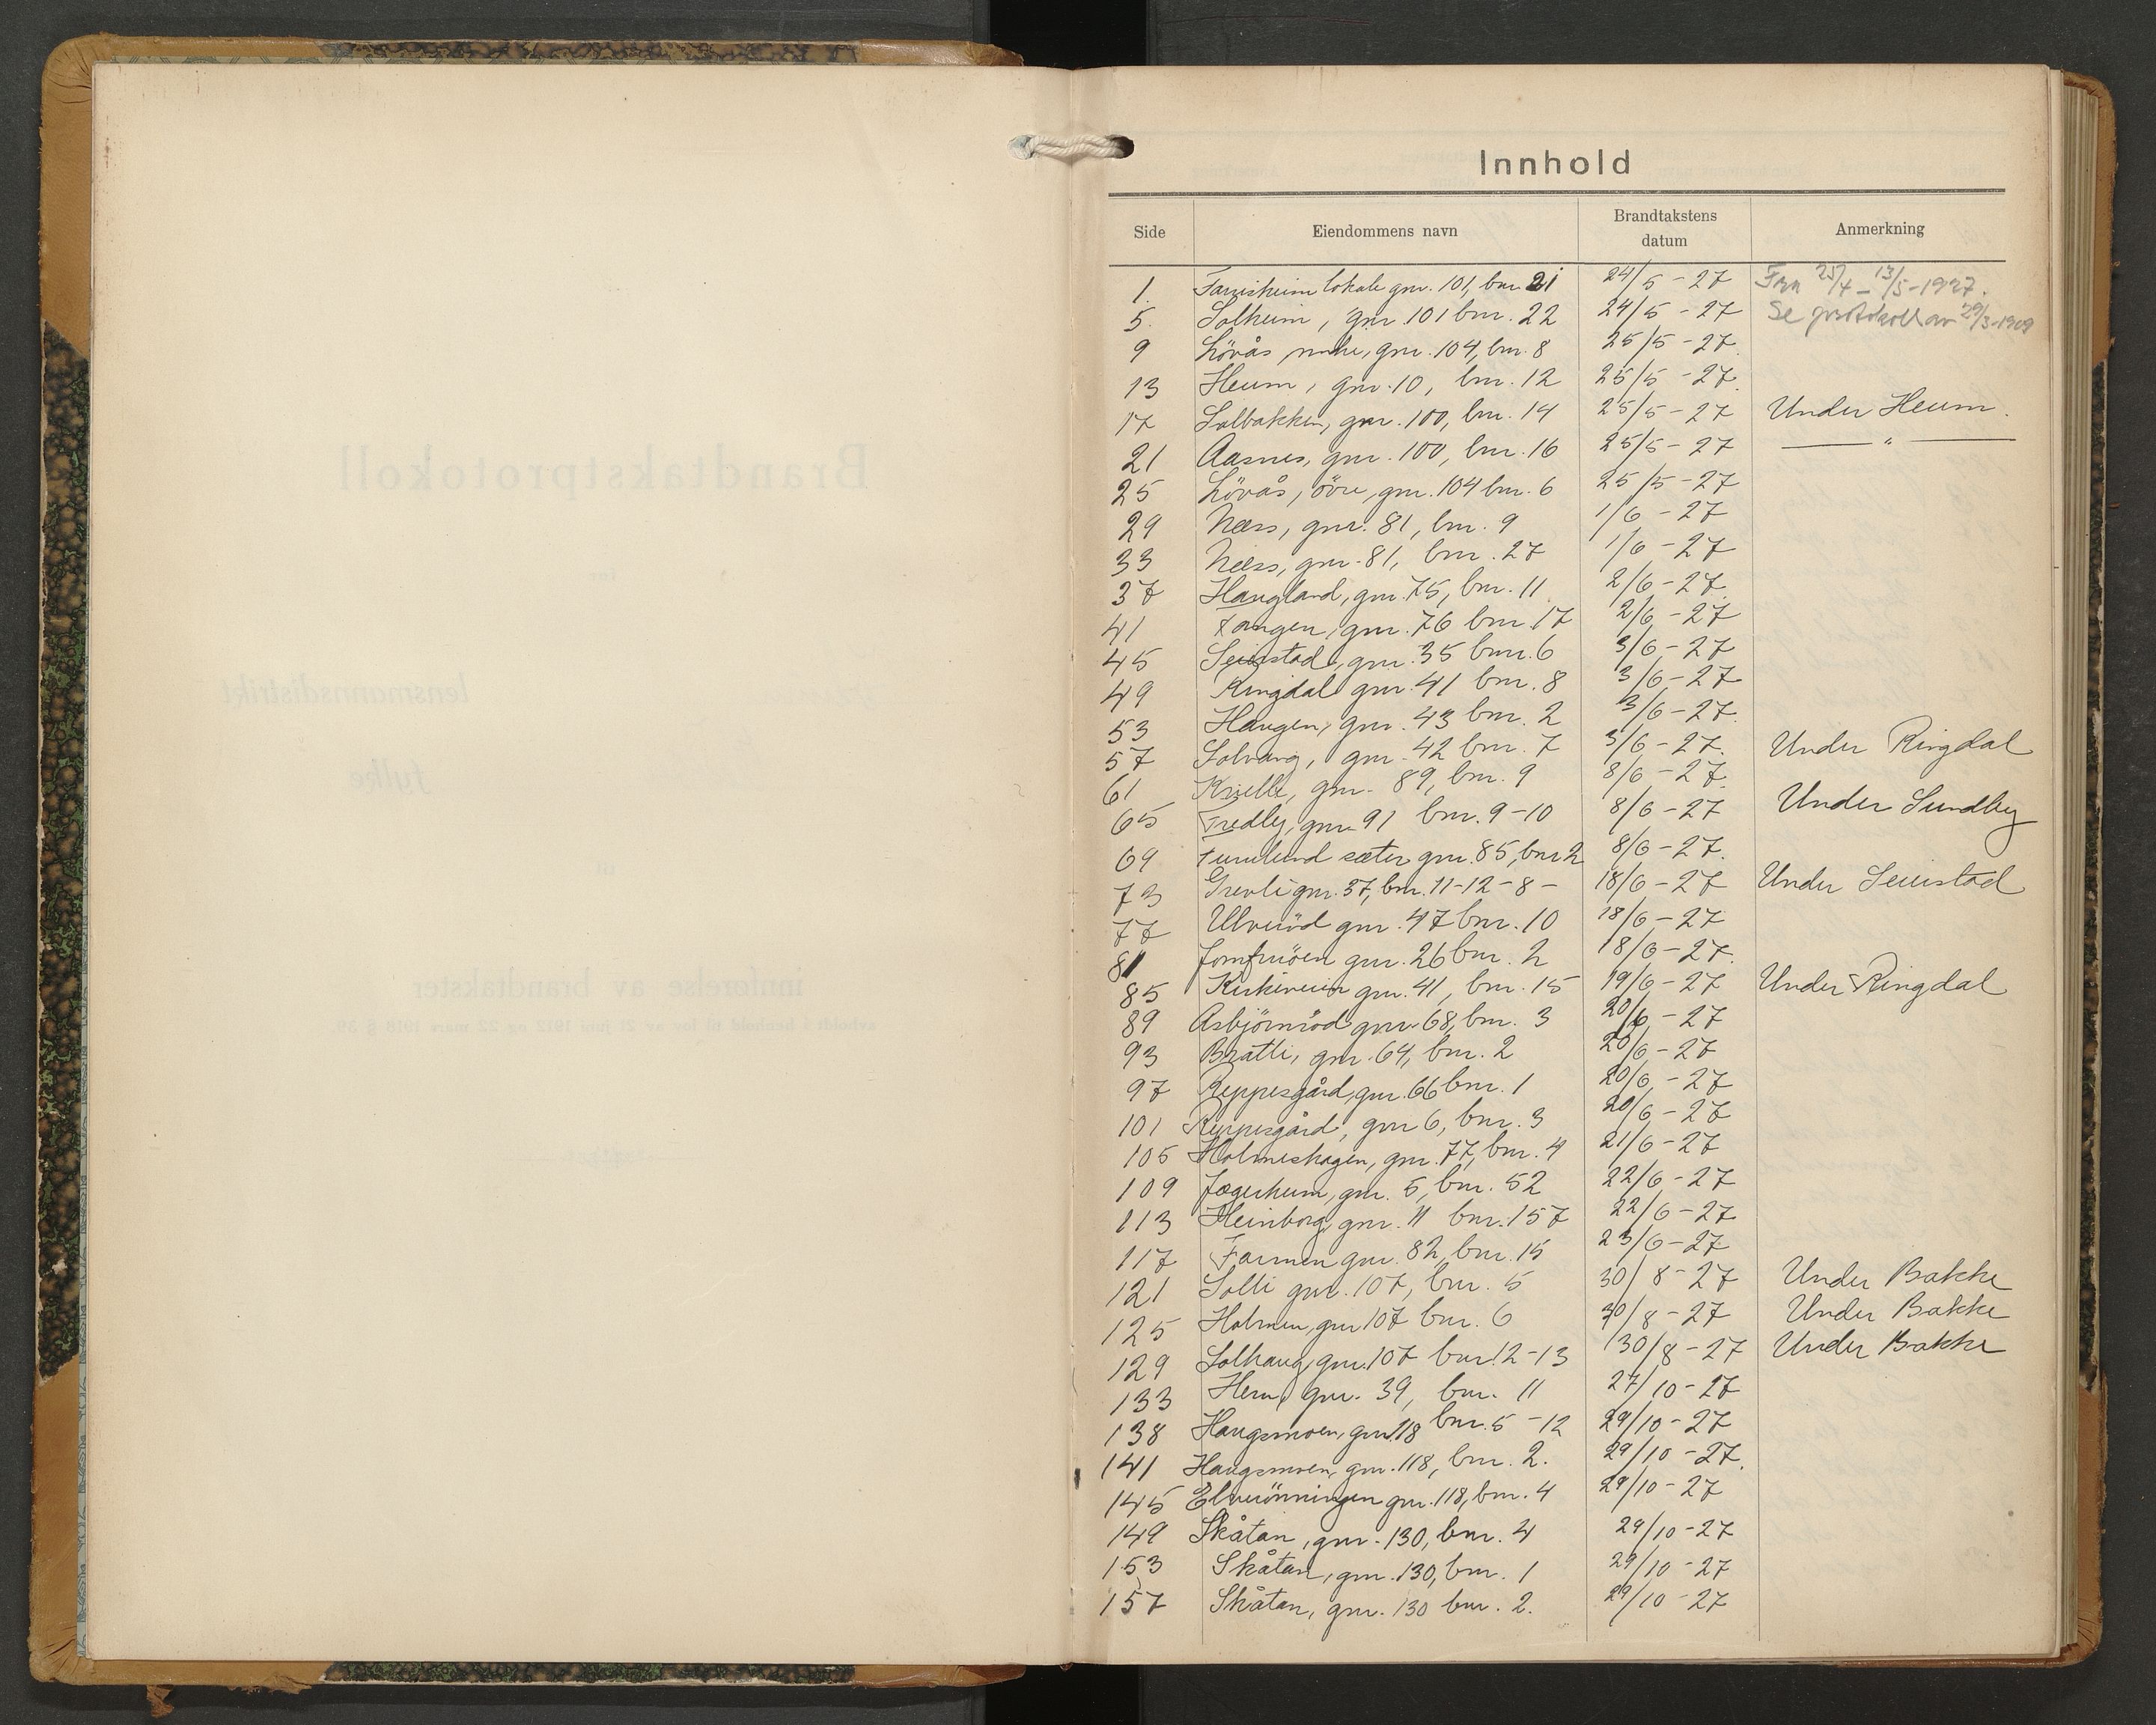 Innhold
Side Eiendommens navn Brandtakstens datum Anmerkning
1. Farrisheim lokale gnr. 101, bnr 21 24/5 - 27 Fra 25/4 - 13/5 - 1927.
5. Solheim, gnr 101 bnr. 22 24/5 - 27 Se protokoll av 29/3-1909
9 Lövås nedre, gnr. 104, bnr. 8 25/5 - 27.
13 Heum, gnr. 10, bnr. 12 25/5 - 27.
17 Solbakken, gnr. 100, bnr. 14 25/5 - 27 Under Heum.
21 Aasnes, gnr. 100, bnr. 16 25/5 - 27 — " —
25 Lövås, övre, gnr. 104 bnr. 6 25/5 - 27
29 Næss, gnr. 81, bnr. 9 1/6 - 27
33 Næss, gnr. 81, bnr. 27 1/6 - 27
37 Haugland, gnr. 75, bnr. 11 2/6 - 27.
41 Tangen, gnr. 76 bnr 17 2/6 - 27
45 Seierstad, gnr. 35 bnr. 6 3/6 - 27
49 Ringdal gnr. 41 bnr. 8 3/6 - 27
53 Haugen, gnr. 43 bnr. 2 3/6 - 27.
57 Solvang, gnr. 42 bnr. 7 3/6 - 27. Under Ringdal
61 gnr. 89, bnr. 9 8/6 - 27.
65 Fredly, gnr 91 bnr. 9-10 8/6 - 27 Under Sundby
69 sæter gnr. 85, bnr 2 8/6 - 27.
73 Grevli gnr. 37, bnr. 11-12-8- 18/6 - 27 Under Seierstad
77 Ulveröd gnr. 47 bnr. 10 18/6 - 27
81 Jomfruöen gnr. 26 bnr. 2 18/6 - 27.
85 Kirkeveien gnr. 41, bnr. 15 19/6 - 27 Under Ringdal
89 Asbjörnröd gnr. 68, bnr. 3 20/6 - 27
93 Bratli, gnr. 64, bnr. 2 20/6 - 27
97 Reppesgård, gnr. 66 bnr. 1 20/6 - 27
101 Reppesgård, gnr 6, bnr. 3 20/6 - 27
105 Holmeskogen, gnr. 77, bnr. 4 21/6 - 27
109 Jægerheim, gnr. 5, bnr. 52 22/6 - 27
113 Heimborg gnr. 11 bnr. 157 22/6 - 27
117 Farmen gnr. 82, bnr. 15 23/6 - 27
121 Solli gnr. 107, bnr. 5 30/8 - 27 Under Bakke
125 Holmen, gnr 107 bnr. 6 30/8 - 27 Under Bakke
129 Solhaug, gnr. 107 bnr. 12-13 30/8 - 27 Under Bakke
133 Hem, gnr. 39, bnr. 11 27/10 - 27
138 Haugsmoen, gnr 118 bnr. 5 - 12 29/10 - 27
141 Haugsmoen, gnr. 118, bnr. 2. 29/10 - 27.
145 Elverönningen gnr. 118, bnr. 4 29/10 - 27
149 Skåtan, gnr. 130, bnr. 4 29/10 - 27
153 Skåtan, gnr. 130, bnr. 1 29/10 - 27
157 Skåtan, gnr. 130 bnr. 2. 29/10 - 27